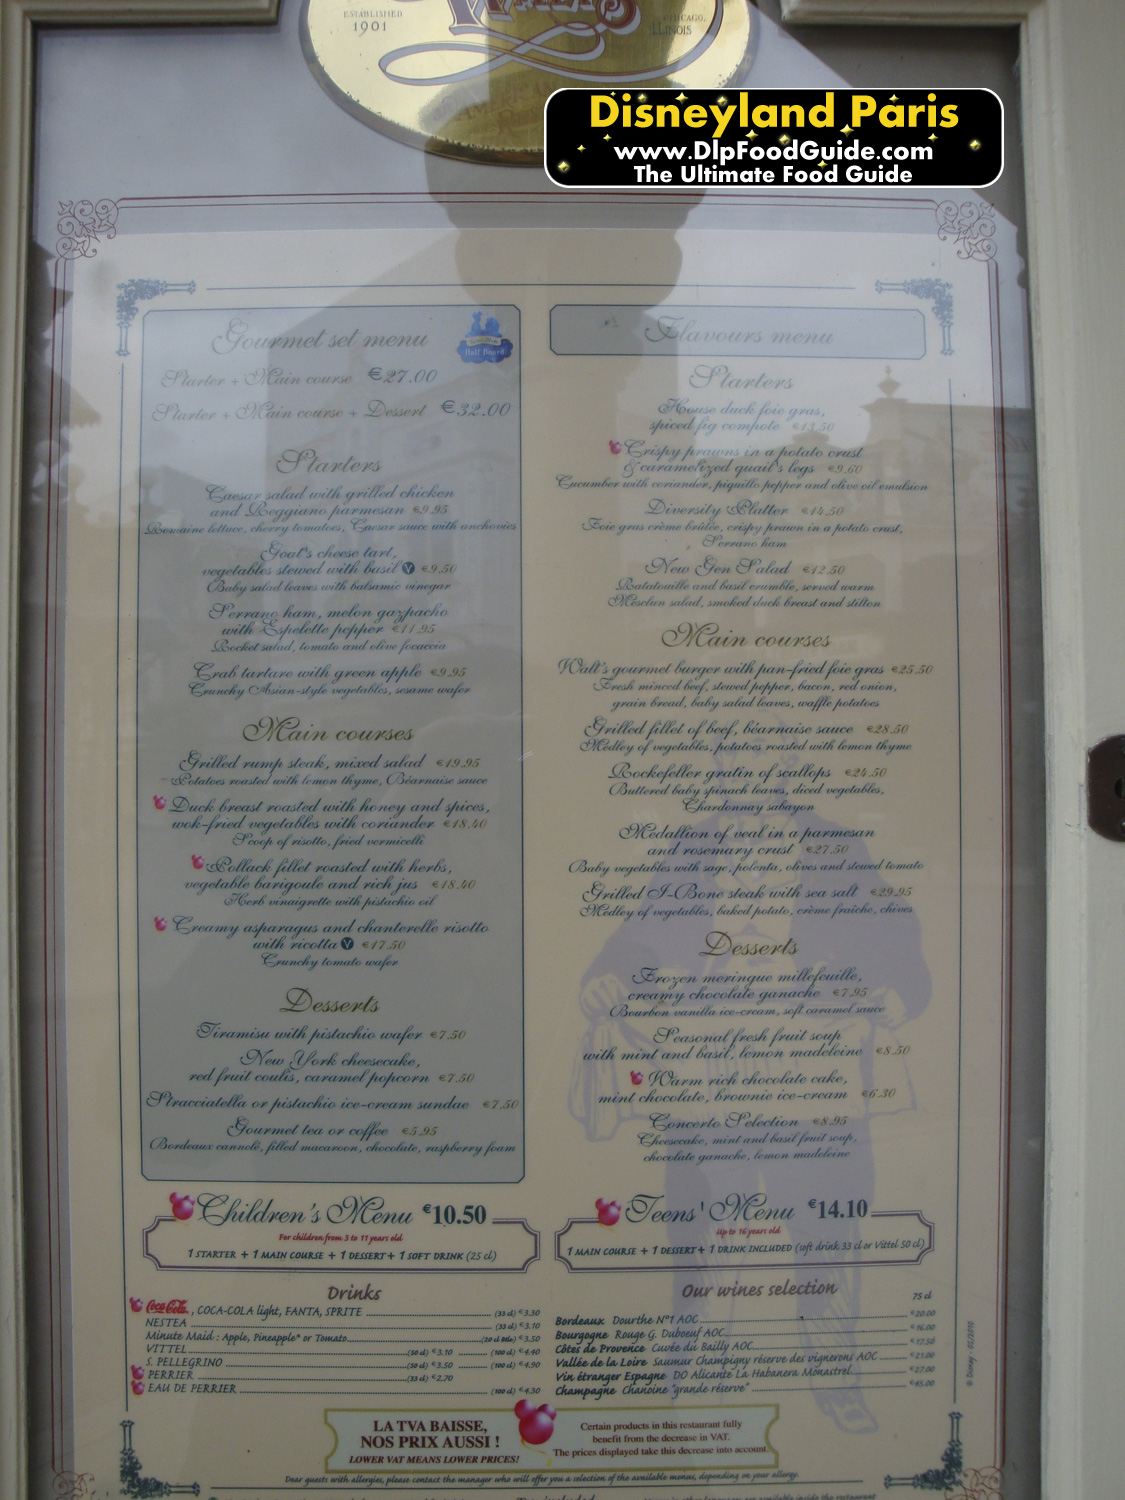 ESTABLISHED
1901
WALT'S
CHICAGO,
ILLINOIS
Disneyland Paris
www.DlpFoodGuide.com
The Ultimate Food Guide
Gourmet set menu
Half Board
Starter + Main course €27.00
Starter + Main course + Dessert €32.00
Starters
Caesar salad with grilled chicken
and Reggiano parmesan €9.95
Romaine lettuce, cherry tomatoes, Caesar sauce with anchovies
Goat's cheese tart,
vegetables stewed with basil V €9.50
Baby salad leaves with balsamic vinegar
Serrano ham, melon gazpacho
with Espelette pepper €11.95
Rocket salad, tomato and olive focaccia
Crab tartare with green apple €9.95
Crunchy Asian-style vegetables, sesame wafer
Main courses
Grilled rump steak, mixed salad €19.95
Potatoes roasted with lemon thyme, Béarnaise sauce
Duck breast roasted with honey and spices,
wok-fried vegetables with coriander €18.40
Scoop of risotto, fried vermicelli
Pollack fillet roasted with herbs,
vegetable barigoule and rich jus €18.40
Herb vinaigrette with pistachio oil
Creamy asparagus and chanterelle risotto
with ricotta V €17.50
Crunchy tomato wafer
Desserts
Tiramisu with pistachio wafer €7.50
New York cheesecake,
red fruit coulis, caramel popcorn €7.50
Stracciatella or pistachio ice-cream sundae €7.50
Gourmet tea or coffee €5.95
Bordeaux cannelé, filled macaroon, chocolate, raspberry foam
Flavours menu
Starters
House duck foie gras,
spiced fig compote €13.50
Crispy prawns in a potato crust
& caramelized quail's legs €9.60
Cucumber with coriander, piquillo pepper and olive oil emulsion
Diversity Platter €14.50
Foie gras crème brûlée, crispy prawn in a potato crust,
Serrano ham
New Gen Salad €12.50
Ratatouille and basil crumble, served warm
Mesclun salad, smoked duck breast and stilton
Main courses
Walt's gourmet burger with pan-fried foie gras €25.50
Fresh minced beef, stewed pepper, bacon, red onion,
grain bread, baby salad leaves, waffle potatoes
Grilled fillet of beef, béarnaise sauce €28.50
Medley of vegetables, potatoes roasted with lemon thyme
Rockefeller gratin of scallops €24.50
Buttered baby spinach leaves, diced vegetables,
Chardonnay sabayon
Medallion of veal in a parmesan
and rosemary crust €27.50
Baby vegetables with sage, polenta, olives and stewed tomato
Grilled T-Bone steak with sea salt €29.95
Medley of vegetables, baked potato, crème fraîche, chives
Desserts
Frozen meringue millefeuille,
creamy chocolate ganache €7.95
Bourbon vanilla ice-cream, soft caramel sauce
Seasonal fresh fruit soup
with mint and basil, lemon madeleine €8.50
Warm rich chocolate cake,
mint chocolate, brownie ice-cream €6.30
Concerto Selection €8.95
Cheesecake, mint and basil fruit soup,
chocolate ganache, lemon madeleine
Children's Menu €10.50
For children from 3 to 11 years old
1 STARTER + 1 MAIN COURSE + 1 DESSERT + 1 SOFT DRINK (25 cl)
Teens' Menu €14.10
Up to 16 years old
1 MAIN COURSE + 1 DESSERT + 1 DRINK INCLUDED (soft drink 33 cl or Vittel 50 cl)
Drinks
Coca-Cola, COCA-COLA light, FANTA, SPRITE (33 cl) €3.30
NESTEA (33 cl) €3.10
Minute Maid : Apple, Pineapple* or Tomato (20 cl btle) €3.50
VITTEL (50 cl) €3.10 (100 cl) €4.40
S. PELLEGRINO (50 cl) €3.50 (100 cl) €4.90
PERRIER (33 cl) €2.70
EAU DE PERRIER (100 cl) €4.30
Our wines selection
75 cl
Bordeaux Dourthe N°1 AOC €20.00
Bourgogne Rouge G. Duboeuf AOC €16.00
Côtes de Provence Cuvée du Bailly AOC €17.50
Vallée de la Loire Saumur Champigny réserve des vignerons AOC €21.00
Vin étranger Espagne DO Alicante La Habanera Monastrel €27.00
Champagne Chanoine "grande réserve" €45.00
© Disney - 03/2010
LA TVA BAISSE,
NOS PRIX AUSSI !
LOWER VAT MEANS LOWER PRICES!
Certain products in this restaurant fully
benefit from the decrease in VAT.
The prices displayed take this decrease into account.
Dear guests with allergies, please contact the manager who will offer you a selection of the available menus, depending on your allergy.